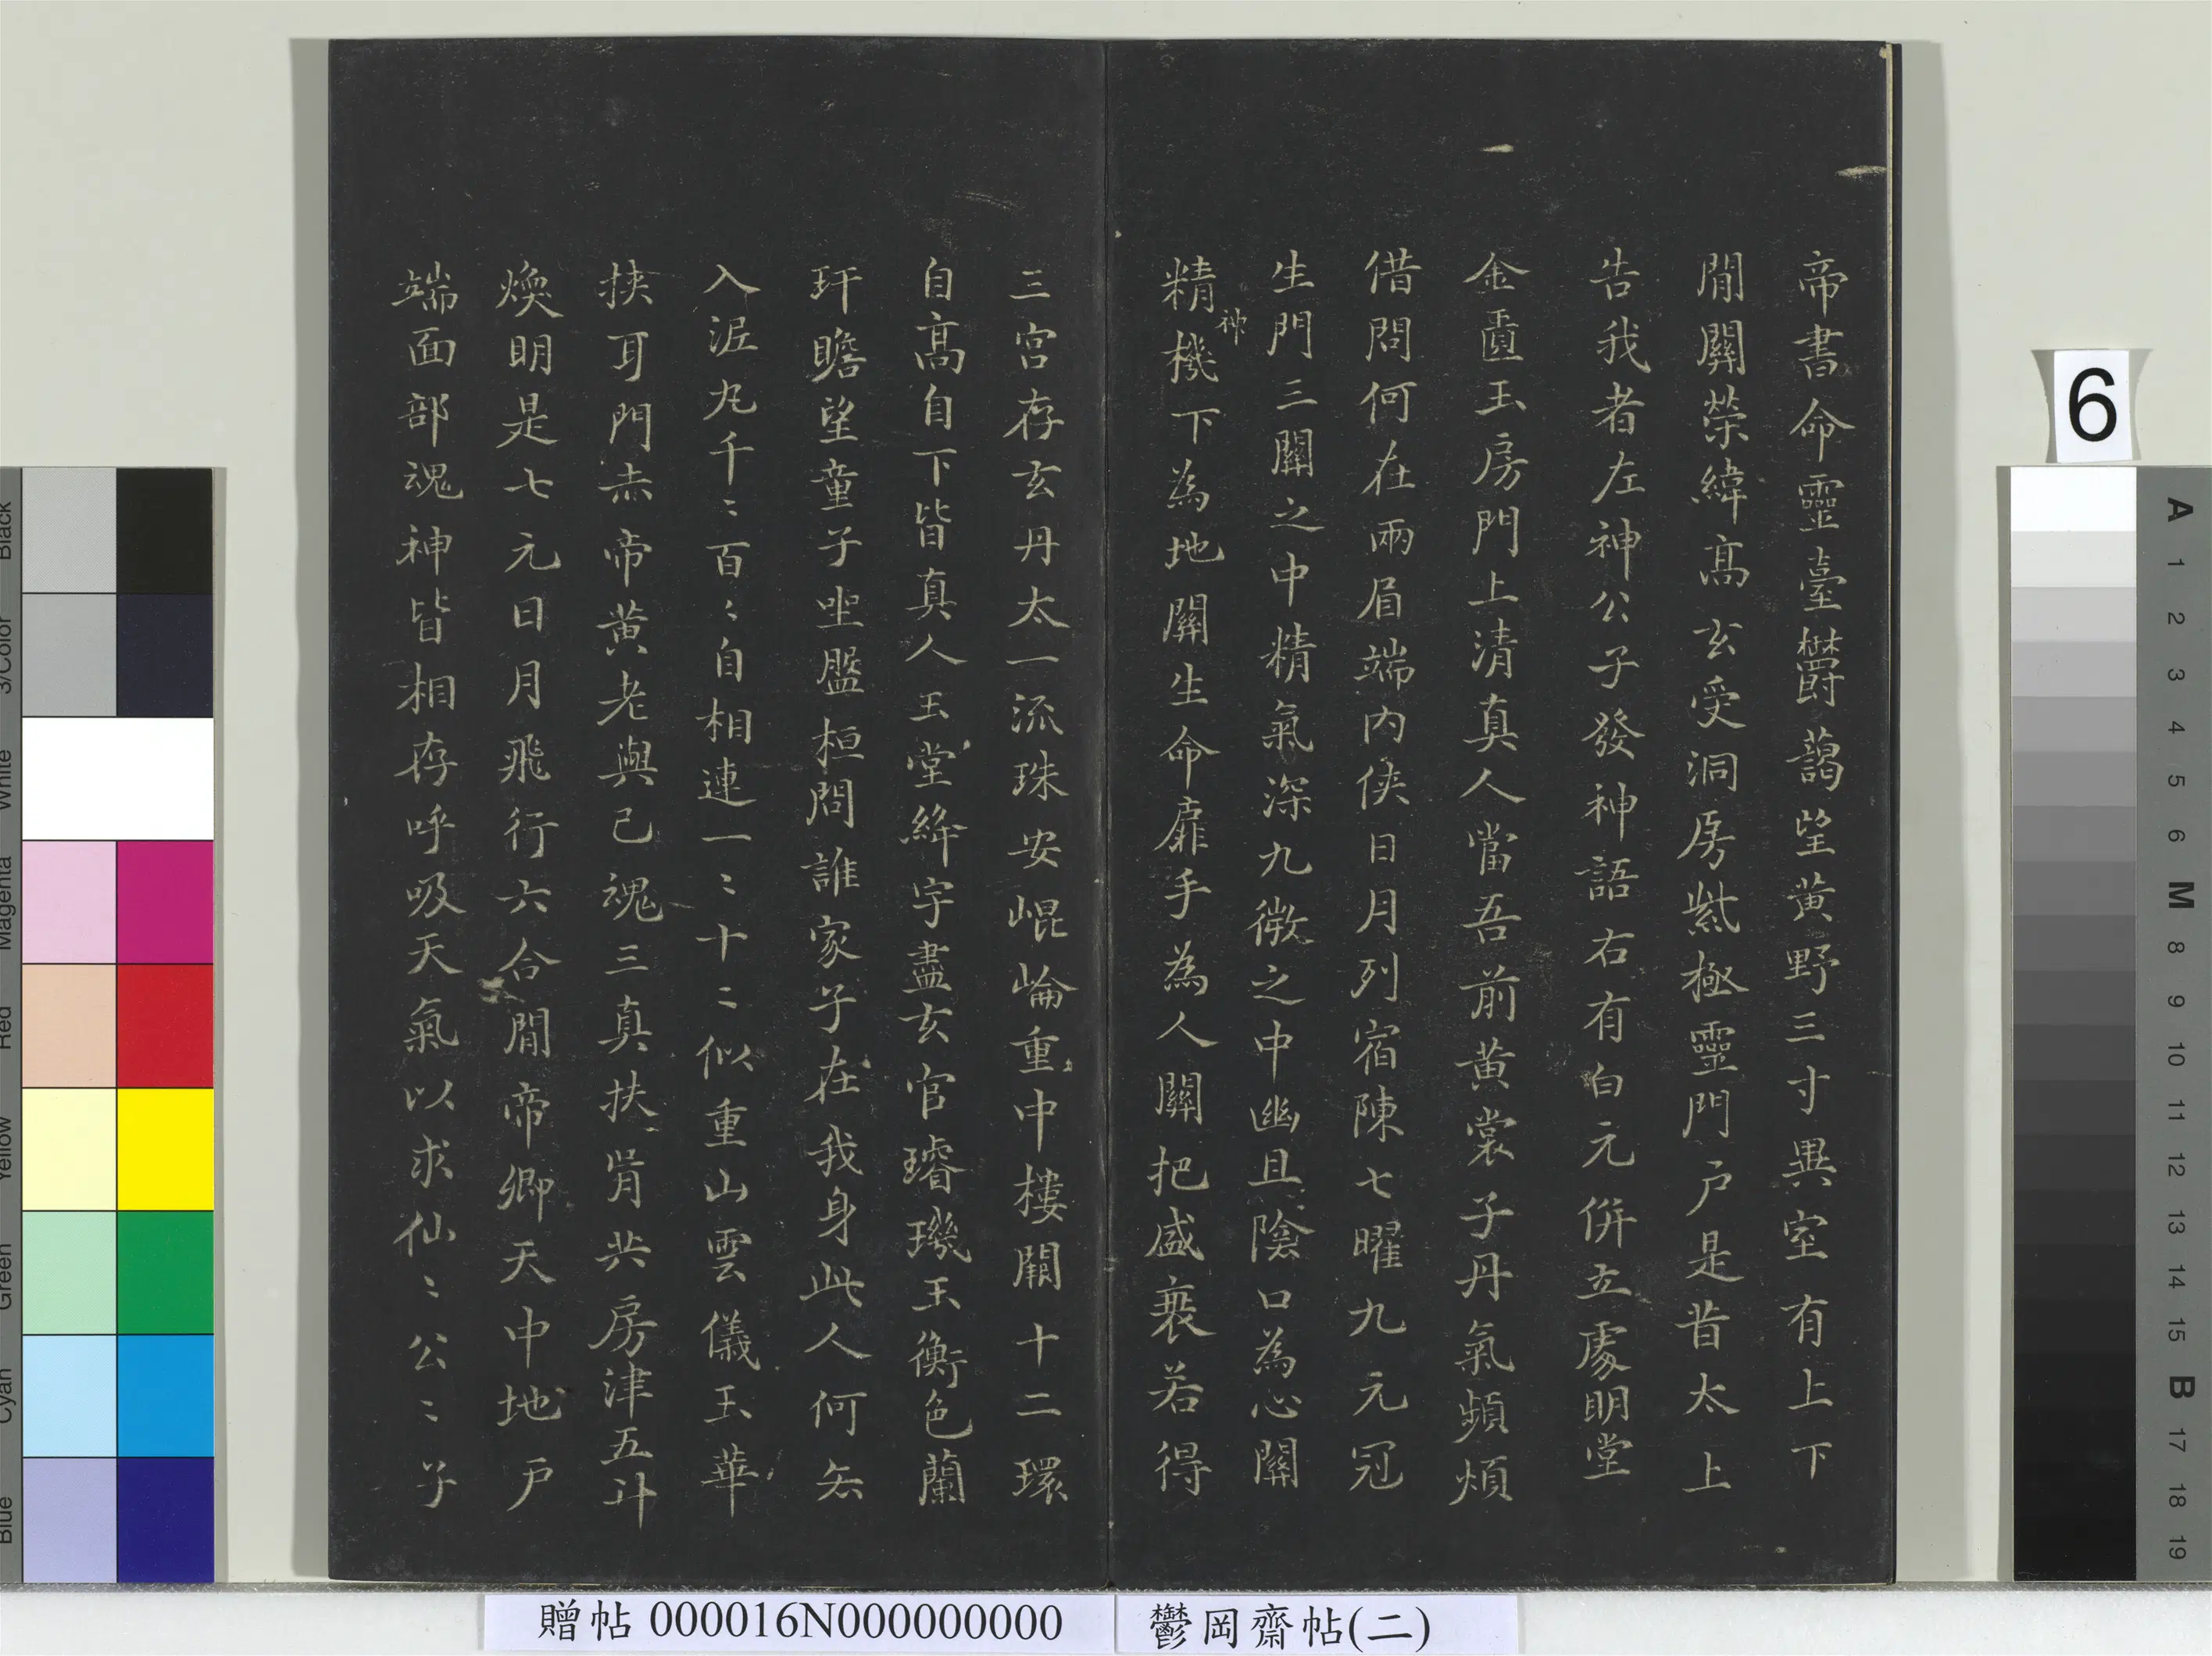 帝書命靈臺欝藹望黃野三寸異室有上下
閒關榮緯髙玄受洞房紫極靈門戶是昔太上
告我者左神公子發神語右有白元併立處明堂
金匱玉房門上清真人當吾前黃裳子丹氣頻煩
借問何在兩眉端內俠日月列宿陳七曜九元冠
生門三關之中精氣深九微之中幽且陰口為心關
精神機下為地關生命扉手為人關把盛衰若得
三宮存玄丹太一流珠安崐崘重中樓閣十二環
自髙自下皆真人玉堂絳宇盡玄宮璿璣玉衡色蘭
玕瞻望童子坐盤桓問誰家子在我身此人何去
入泥丸千〻百〻自相連一〻十〻似重山雲儀玉華
挾耳門赤帝黃老與己魂三真扶胥共房津五斗
煥明是七元日月飛行六合閒帝卿天中地戶
端面部魂神皆相存呼吸天氣以求仙〻公〻子
6
贈帖 000016N000000000
鬱岡齋帖(二)
Black
3/Color
White
Magenta
Red
Yellow
Green
Cyan
Blue
A
1
2
3
4
5
6
M
8
9
10
11
12
13
14
15
B
17
18
19